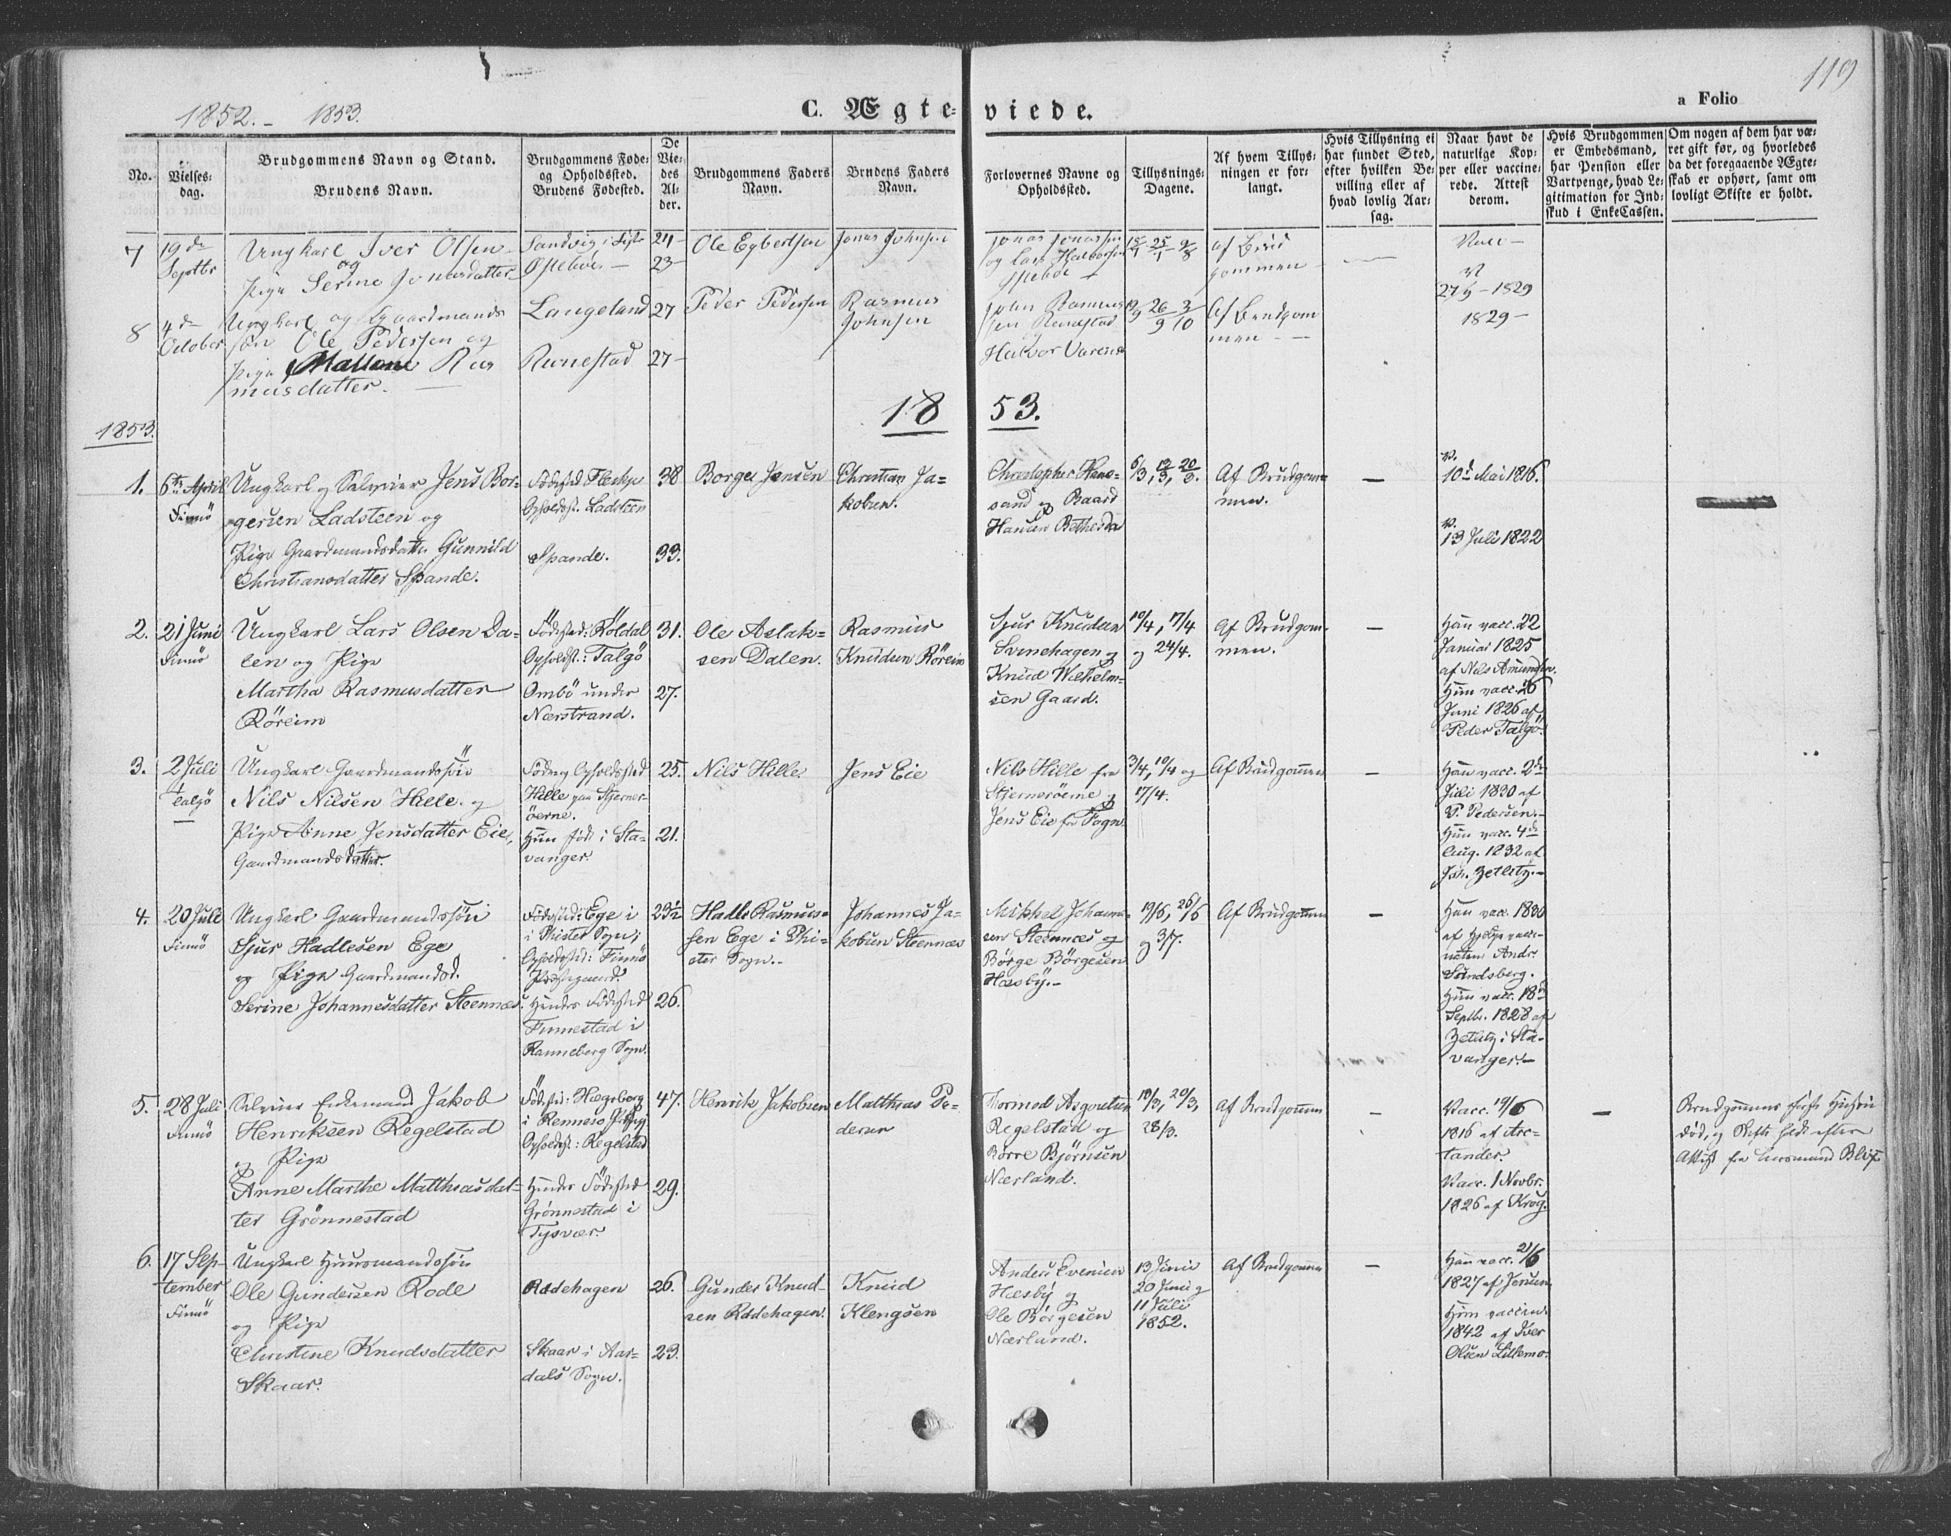 119
1852.- 1853.
C. Ægteviede.
a Folio
No.
Vielses-
dag.
Brudgommens Navn og Stand.
Brudens Navn.
Brudgommens Føde-
og Opholdssted.
Brudens Fødested.
De
Vie-
des
Al-
der.
Brudgommens Faders
Navn.
Brudens Faders
Navn.
Forlovernes Navne og
Opholdssted.
Tillysnings-
Dagene.
Af hvem Tillys-
ningen er for-
langt.
Hvis Tillysning ei
har fundet Sted,
efter hvilken Be-
villing eller af
hvad lovlig Aar-
sag.
Naar havt de
naturlige Kop-
per eller vaccine-
rede. Attest
derom.
Hvis Brudgommen
er Embedsmand,
har Pension eller
Vartpenge, hvad Le-
gitimation for Ind-
skud i EnkeCassen.
Om nogen af dem har væ-
ret gift før, og hvorledes
da det foregaaende Ægte-
skab er ophørt, samt om
lovligt Skifte er holdt.
7
19de
Septbr
Ungkarl Iver Olsen
og
Pige Serine Jonasdatter
Sandvig i
Østebøe
24
23
Ole Egbertsen
Jonas Johnsen
Jonas Jonassen
og Lars Halvorsen
Østebøe
af Brud
gommen
Vacc
27/9 - 1829
8
4de
October
Ungkarl og Gaardmands
søn Ole Pedersen og
Pige Mallene Ras
musdatter.
Langeland
Runestad
27
27
Peder Pedersen
Rasmus
Johnsen
John Rasmus
sen Runestad
Halvor
26/9 3/10
af Brudgom
men
1829
1853.
1853.
1.
6te April
Finnö
Ungkarl og Selveier Jens Bor-
gersen Ladsteen og
Pige Gaardmandsdatter Gunnild
Christiansdatter Spande.
Födested
Opholdst. Ladsteen
Spande.
38
33.
Borge Jensen
Christian Ja-
kobsen.
Christopher Hane-
sand og Baard
Hansen Bethesda
6/3, 13/3, 20/3.
Af Brudgom-
men.
v.
10d Mai 1816.
v.
13 Juli 1822
2.
21 Juni
Finnö
Ungkarl Lars Olsen Da-
len og Pige
Martha Rasmusdatter
Röreim
Födested: Röldal
Opholdst.: Talgö
Ombö under
Nærstrand.
31.
27.
Ole Aslak-
sen Dalen.
Rasmus
Knudsen Röreim
Sjur Knudsen
Svinehagen og
Knud Wilhelm-
sen Gaard.
10/4, 17/4
og 24/4.
Af Brudgom-
men.
Han vacc. 22
Januar 1825
af Nils Amundsen.
Hun vacc. 26
Juni 1826 af
Peder Talgö.
3.
2 Juli
Talgö
Ungkarl Gaardmandssön
Nils Nilsen Hille og
Pige Anne Jensdatter Eie,
Gaardmandsdatter.
Föde og Opholdssted
Hille paa Stjerner-
öerne.
Hun föd i Sta-
vanger.
25.
21.
Nils Hille
Jens Eie
Nils Hille fra
Stjerneröerne og
Jens Eie fra Fogn.
3/4, 10/4 og
17/4.
Af Brudgommen
Han vacc. 2de
Juli 1830 af
P. Pedersen.
Hun vacc. 4de
Aug. 1832 af
Joh. Zetlitz.
4.
20 Juli
Finnö
Ungkarl Gaardmandssön
Sjur Hadlesen Ege
og Pige Gaardmandsd.
Serine Johannesdatter Steennæs
Födested: Ege i
Opholdsted: Finnö
Præstegjeld
Hendes Födested
Finnestad i
Ranneberg Sogn.
23½
26.
Hadle Rasmus-
sen Ege i
Sogn.
Johannes Ja-
kobsen Steennæs
Mikkel Johanne-
sen Steennæs og
Börge Börgesen
Hæsby.
19/6, 26/6
og 3/7.
Af Brudgommen
Han vacc. 1830
af Hjelpevacci-
natør Andr.
Sundsberg.
Hun vacc. 18de
Septbr. 1828 af
Zetlitz i Sta-
vanger.
5.
28 Juli
Finnö
Selveier Enkemand Jakob
Henriksen Regelstad
og Pige
Anne Marthe Matthiasdat-
ter Grönnestad
Födested: Hægeberg
i Rennesö
Opholdst: Regelstad
Hendes Födested
Grönnestad i
Tysvær.
47.
29.
Henrik Jakobsen
Matthias Pe-
dersen
Thormod Asgoutsen
Regelstad og
Börre Björnsen
Nærland.
13/3, 20/3,
28/3.
Af Brudgommen
Vacc. 19/6
1816 af Arc-
tander.
Vacc. 1 Novbr.
1826 af Krog.
Brudgommens första Hustru
död, og Skifte holdt efter
Attest fra Lensmand
6.
17 Sep-
tember
Finnö
Ungkarl Huusmandssön
Ole Gundersen Rode
og Pige
Christine Knudsdatter
Skaar.
Rodehagen
Skaar i Aar-
dals Sogn.
26.
23.
Gunder Knud-
sen Rodehagen.
Knud
Klengsen
Anders Evensen
Hæsby og
Ole Börgesen
Nærland.
13 Juni
20 Juni og
11 Juli
1852.
Af Brudgommen
Han vacc. 21/6
1827 af Jensen
Hun vaccin.
1842 af Iver
Olsen Lillemo.